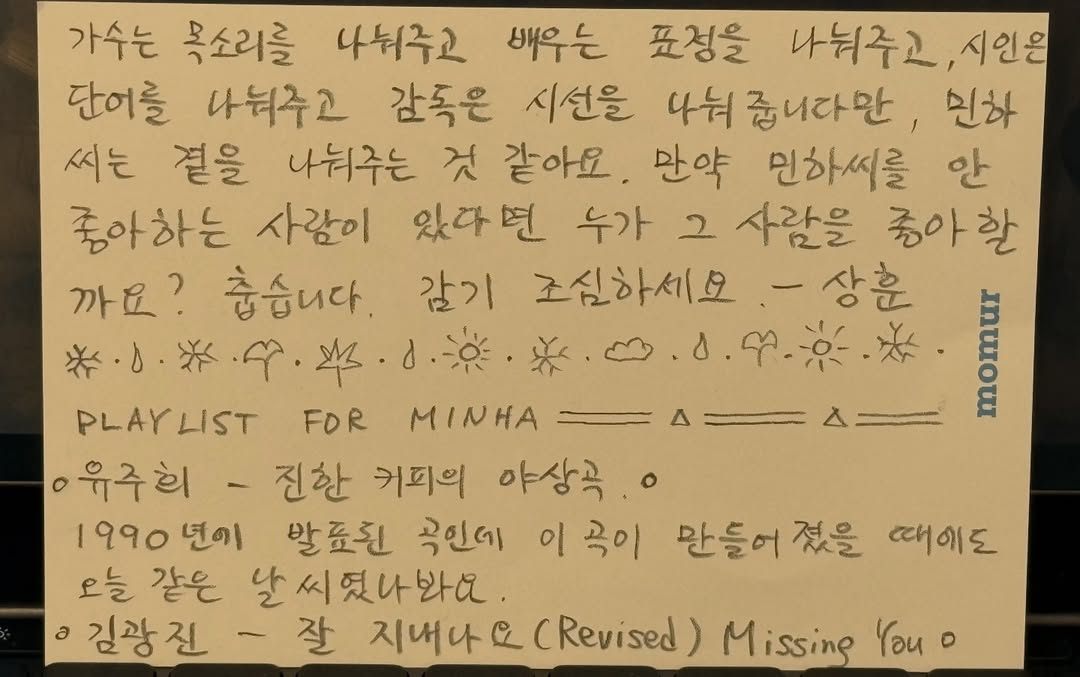 가수는 목소리를 나눠주고 배우는 표정을 나눠주고, 시인은
단어를 나눠주고 감독은 시선을 나눠줍니다만, 민하
씨는 곁을 나눠주는 것 같아요. 만약 민하씨를 안
좋아하는 사람이 있다면 누가 그 사람을 좋아할
까요? 춥습니다. 감기 조심하세요. - 상훈
momur
PLAYLIST FOR MINHA
유주희 - 진한 커피의 야상곡.
1990년에 발표된 곡인데 이 곡이 만들어졌을 때에도
오늘 같은 날씨였나봐요.
김광진 - 잘 지내나요 (Revised) Missing You